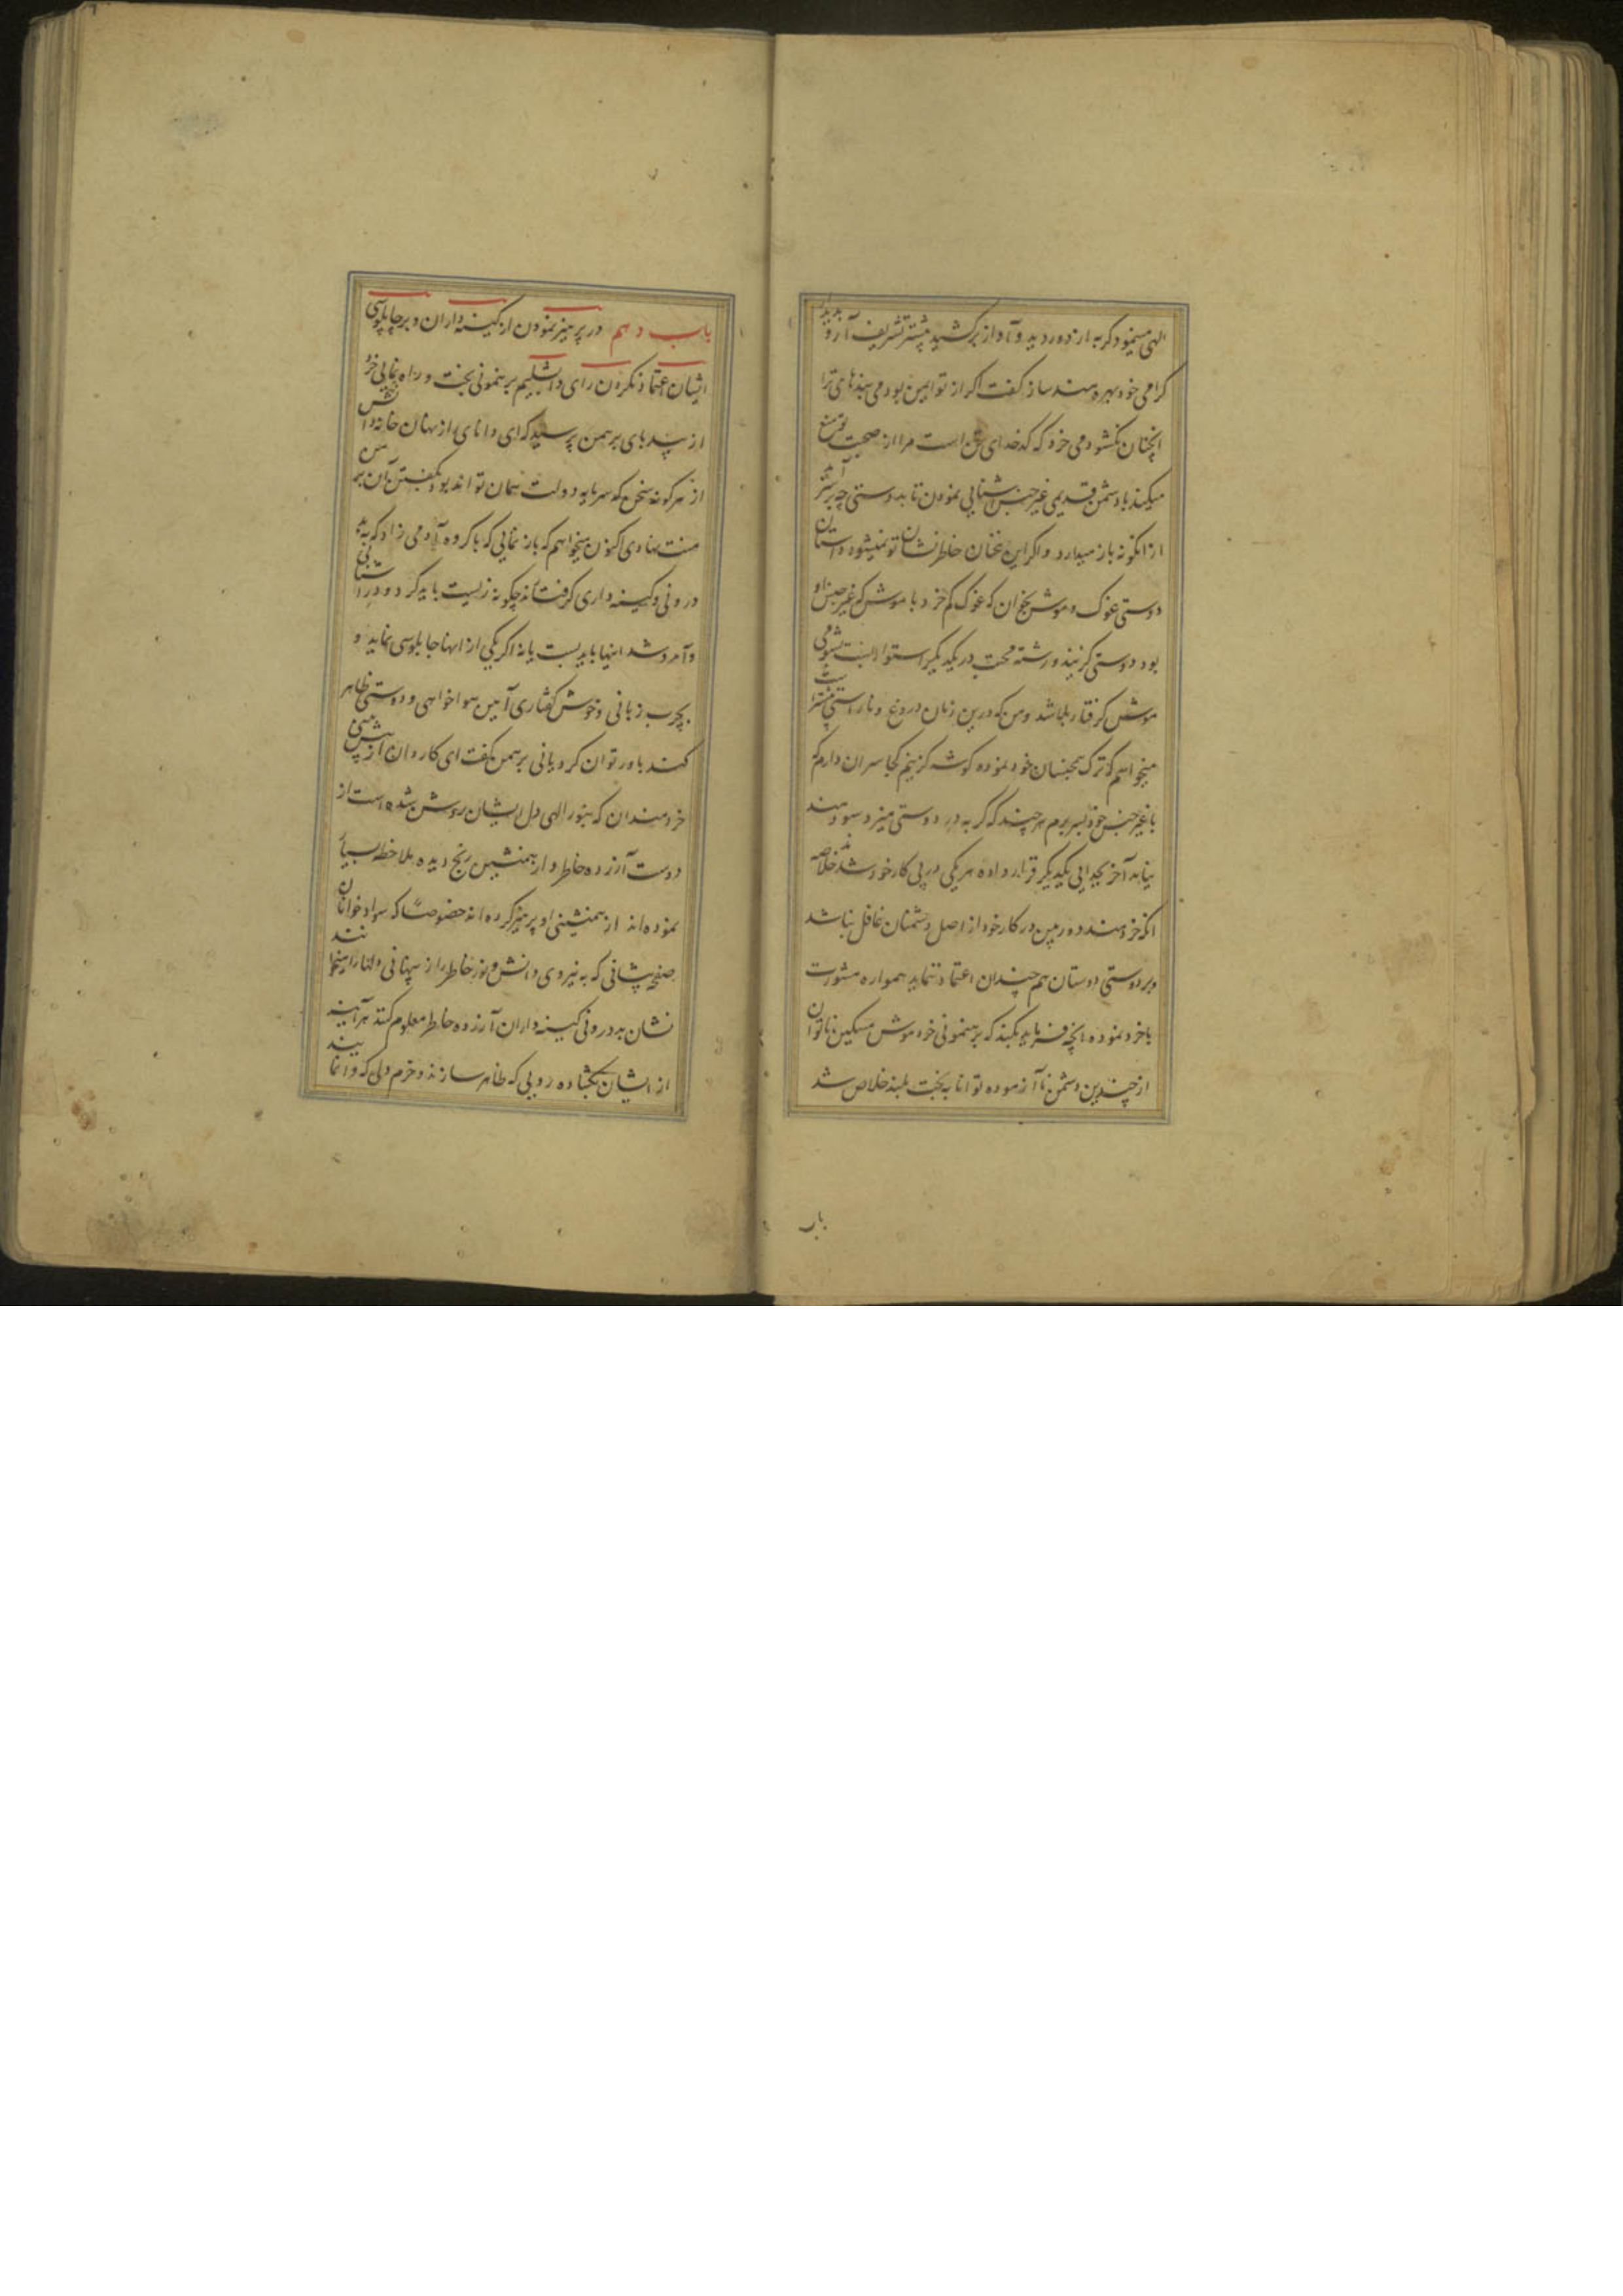 الهی مینمود گربه از دور دید و آواز برکشید پیشتر تشریف آر و بدیدار
گرامی خود بهره‌مند ساز گفت اگر از تو ایمن بودمی بندهای ترا
آنچنان نگشودمی خرد که کدخدای تن است مرا از صحبت تو منع
میکند با دشمن قدیمی غیر جنس آشنایی نمودن تا بدوستی چه رسد
از انگونه باز میدارد و اگر این سخنان خاطرنشان تو نمیشود داستان
دوستی غوک و موش بخوان که غوک کم خرد با موش که غیر جنس او
بود دوستی گزیند و رشته محبت در یکدیگر استوار بست بشومی
موش گرفتار بلا شد و من که درین زمان دروغ و ناراستی
میخواهم که ترک همجنسان خود نموده گوشه گزینم کجا سر آن دارم که
با غیر جنس خود بسر برم هر چند که گربه در دوستی میزد سودمند
نیامد آخر بجدایی یکدیگر قرار داده هر یکی در پی کار خود شدند خلاصه
آنکه خردمند دوربین در کار خود از اصل دشمنان غافل نباشد
و بر دوستی دوستان هم چندان اعتماد ننماید همواره مشورت
با خرد نموده آنچه فرماید بکند که برهنمونی خرد موش مسکین ناتوان
از چندین دشمن ناآزموده توانا به بخت بلند خلاص شد
باب
باب دهم در پرهیز نمودن از کینه‌داران و بر چاپلوسی
ایشان اعتماد نکردن رای دابشلیم برهنمونی بخت و راه نمایی خرد
از بیدپای برهمن پرسید که ای دانای راز نهان خانه دانش
از هر گونه سخن که سرمایه دولت همان تواند بود بگفتن آن بر من
منت نهادی اکنون میخواهم که باز نمایی که با گروه آدمی زاد که به بد
درونی و کینه داری گرفته‌اند چگونه زیست باید کرد و در آشنایی
و آمد و شد اینها باید بست یا نه اگر یکی از اینها چاپلوسی نماید و
بچرب زبانی و خوش گفتاری آیین هواخواهی و دوستی ظاهر
کند باور توان کرد یا نی برهمن گفت ای کاردان از پیشین
خردمندان که بنور الهی دل ایشان روشن شده است از
دوست آزرده خاطر و از همنشین رنج دیده ملاحظه بسیار
نموده‌اند از همنشینی او پرهیز کرده‌اند خصوصا که سواد خوانان
صفحه پیشانی که به نیروی دانش و نور خاطر راز پنهانی دلها را میخوانند
نشان بد درونی کینه داران آزرده خاطر معلوم کنند هر آینه
از ایشان بگشاده رویی که ظاهر سازند و خرم دلی که وا نمایند